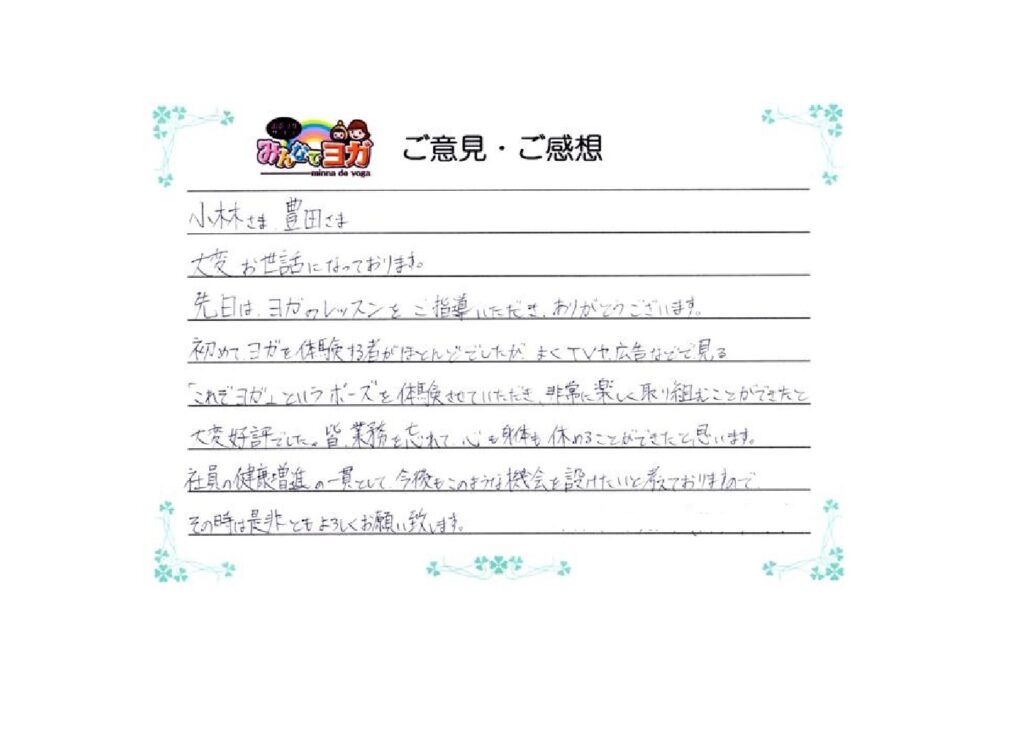 みんなでヨガ
minna de yoga
ご意見・ご感想
小林さま 豊田さま
大変お世話になっております。
先日は、ヨガのレッスンをご指導いただき、ありがとうございます。
初めてヨガを体験する者がほとんどでしたが、よくTVや広告などで見る
「これぞヨガ」というポーズを体験させていただき、非常に楽しく取り組むことができたと
大変好評でした。皆、業務を忘れて、心も身体も休めることができたと思います。
社員の健康増進の一貫として、今後もこのような機会を設けたいと考えておりますので、
その時は是非ともよろしくお願い致します。